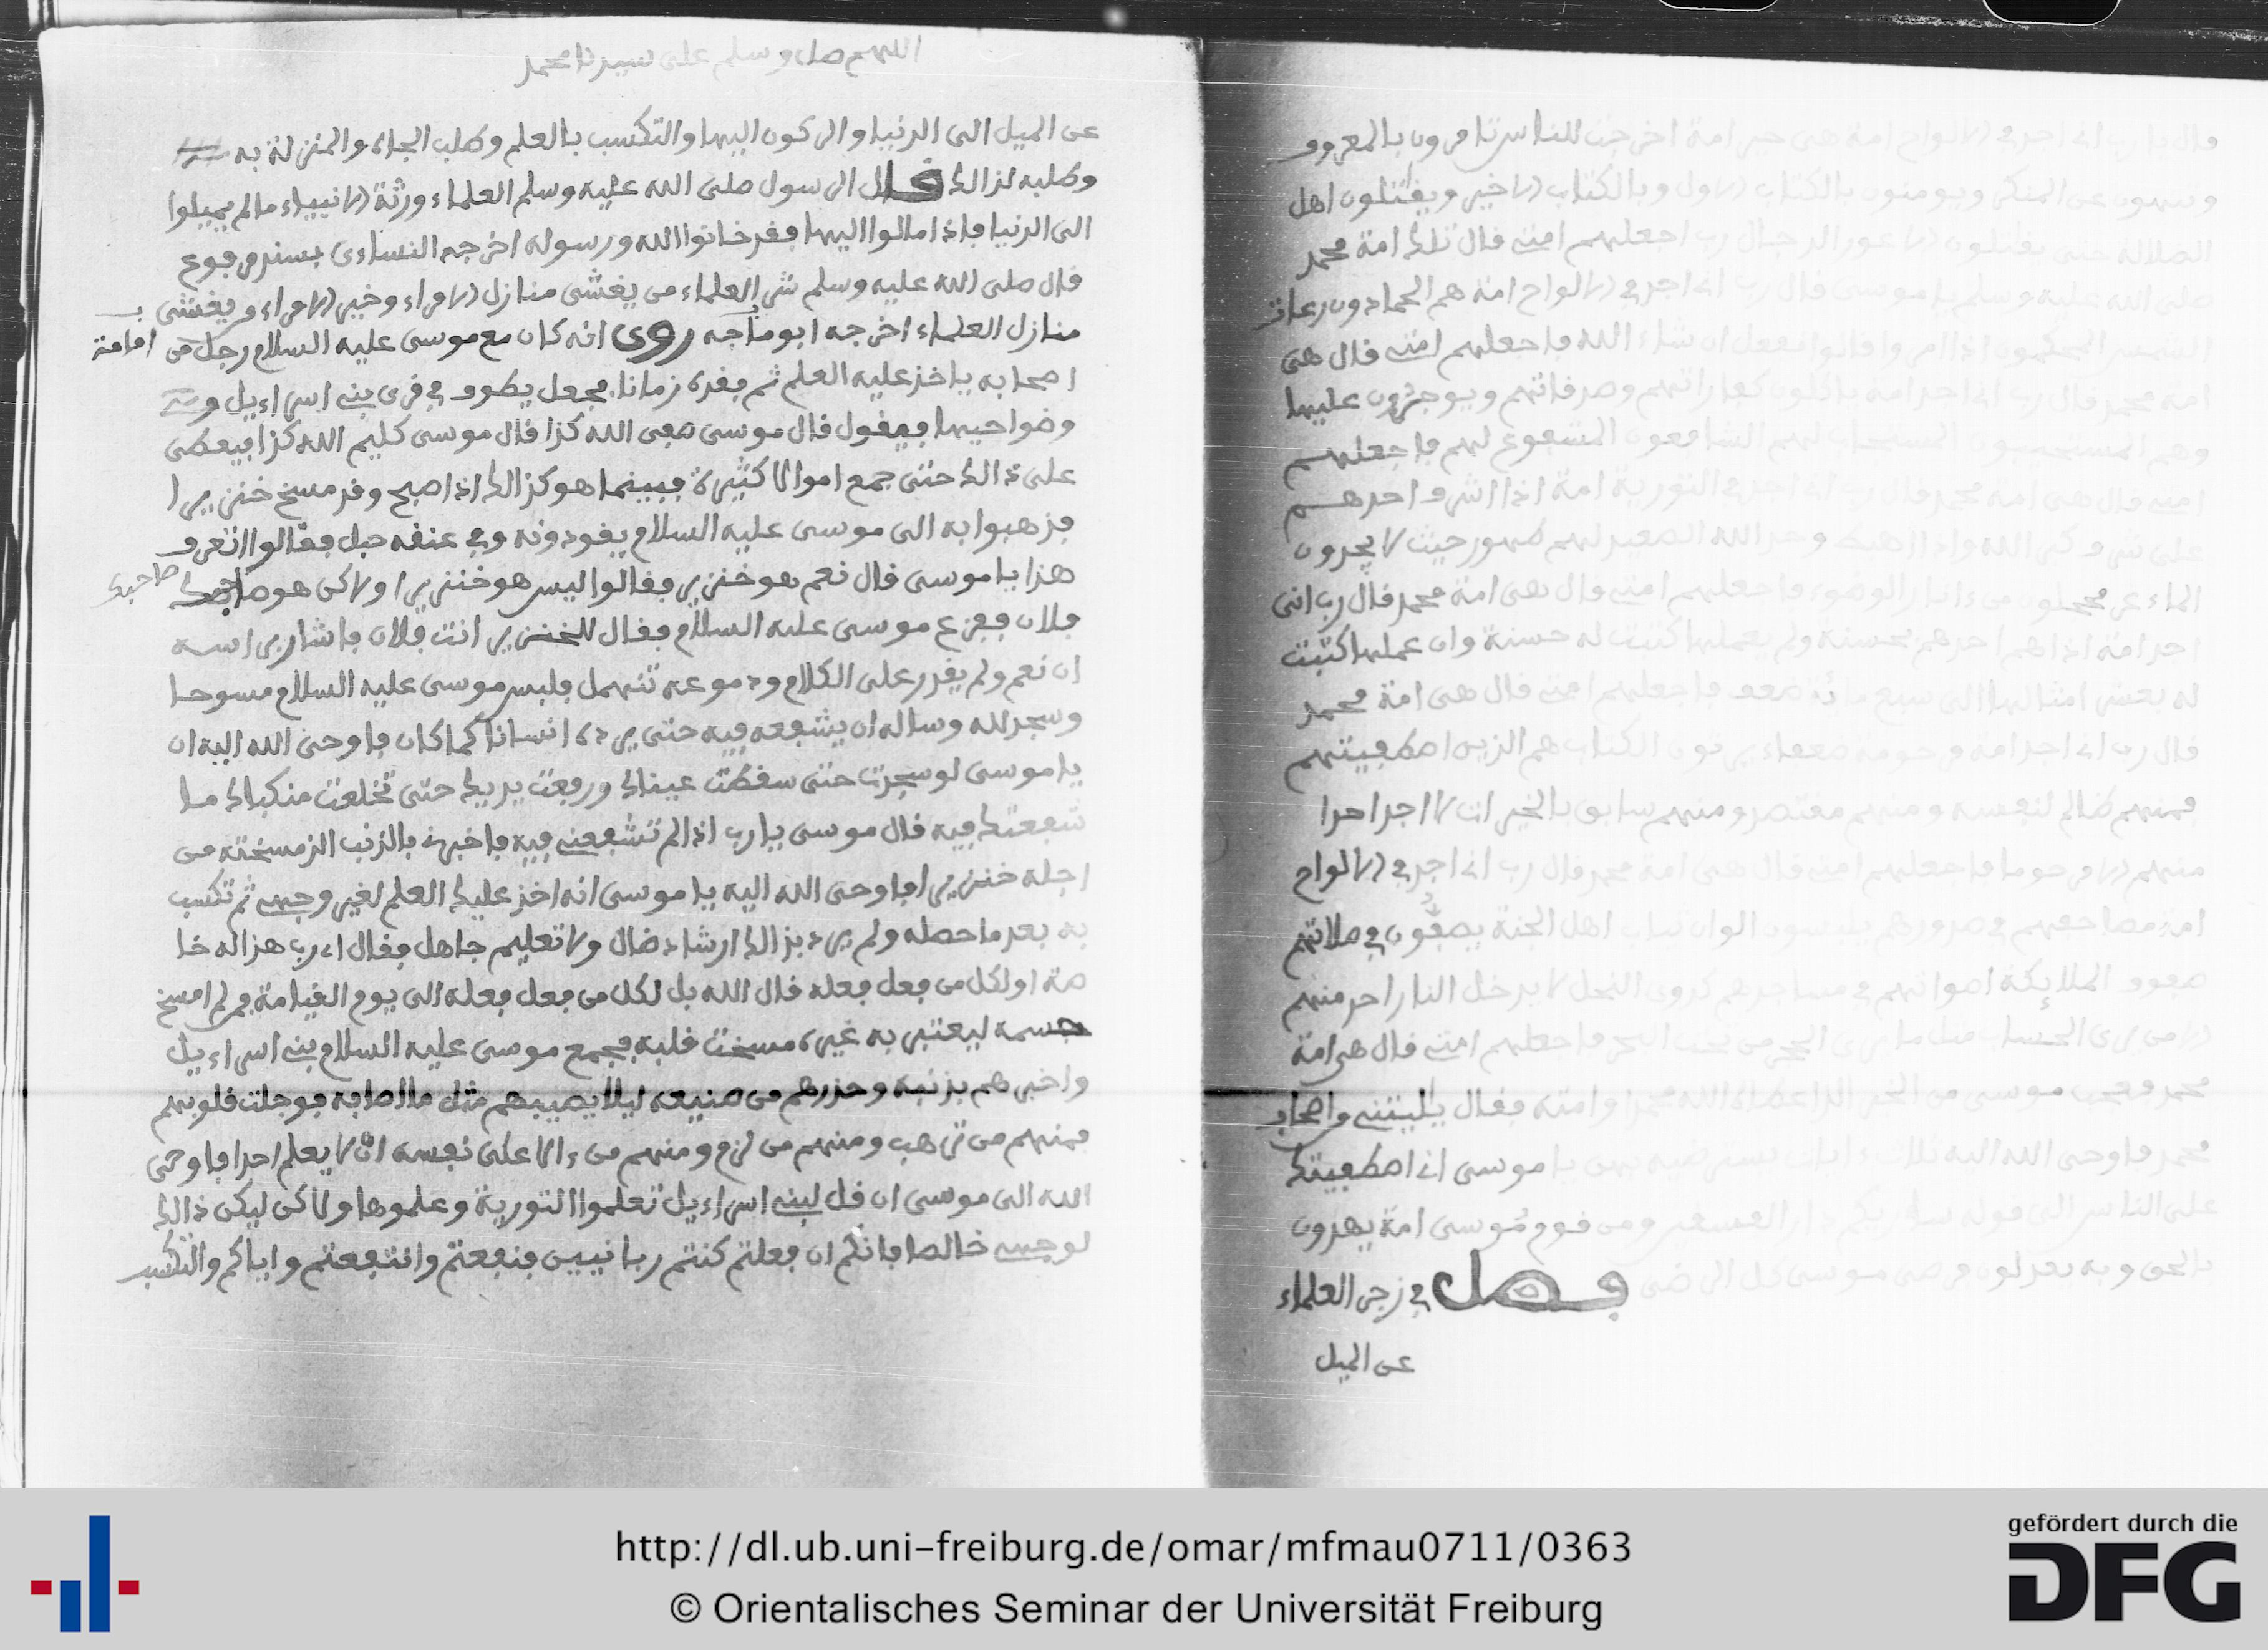 قال يا رب اني اجد في الالواح امة هي خير امة اخرجت للناس تامرون بالمعروف
وينهون عن المنكر ويومنون بالكتاب الاول وبالكتاب الاخير ويقتلون اهل
الضلالة حتى يقتلون الاعور الدجال رب اجعلهم امتي قال تلك امة محمد
صلى الله عليه وسلم يا موسى قال رب اني اجد في الالواح امة هم الحمادون رعات
الشمس المحكمون اذا امروا قالوا نفعل ان شاء الله فاجعلهم امتي قال هي
امة محمد قال رب اني اجد امة ياكلون كفاراتهم وصدقاتهم ويوجرون عليها
وهم المستجاب لهم الشافعون المشفوع لهم فاجعلهم
امتي قال هي امة محمد قال رب اني اجد في التورية امة اذا اشرف احدهم
على شرف كبر الله واذا هبط حمد الله الصعيد لهم طهور حيث لا يجدون
الماء غر محجلون من ءاثار الوضوء فاجعلهم امتي قال هي امة محمد قال رب انى
اجد امة اذا هم احدهم بحسنة ولم يعملها كتبت له حسنة وان عملها كتبت
له بعشر امثالها الى سبع مائة ضعف فاجعلهم امتي قال هي امة محمد
قال رب اني اجد امة مرحومة ضعفاء يرثون الكتاب هم الذين اصطفيتهم
فمنهم ظالم لنفسه ومنهم مقتصد ومنهم سابق بالخيرات لا اجد احدا
منهم الا مرحوما فاجعلهم امتي قال هي امة محمد قال رب اني اجد في الالواح
امة مصاحفهم في صدورهم يلبسون الوان ثياب اهل الجنة يصفون في صلاتهم
صفوف الملايكة اصواتهم في مساجدهم كدوي النحل لا يدخل النار احد منهم
الا من يرى الحساب مثل ما يرى الحجر من تحت البحر فاجعلهم امتي قال هي امة
محمد فعجب موسى من الخير الذي اعطاه الله محمدا وامته فقال يليتني واصحاب
محمد فاوحى الله اليه ثلاث ءايات يسترضيه بهن يا موسى اني اصطفيتك
على الناس الى قوله ساوريكم دار الفسقين ومن قوم موسى امة يهدون
بالحق وبه يعدلون فرضي موسى كل الرضى فصل في زجر العلماء
عن الميل
اللهم صل وسلم على سيدنا محمد
عن الميل الى الدنيا والركون اليها والتكسب بالعلم وطلب الجاه والمنزلة به
وطلبه لذالك قال الرسول صلى الله عليه وسلم العلماء ورثة الانبياء ما لم يميلوا
الى الدنيا فاذا مالوا اليها فقد خانوا الله ورسوله اخرجه النساءى بسند مرفوع
قال صلى الله عليه وسلم شر العلماء من يغشى منازل الامراء وخير الامراء من يغشى
منازل العلماء اخرجه ابو ماجه روى انه كان مع موسى عليه السلام رجل من امامة
اصحابه ياخذ عليه العلم ثم فقده زمانا فجعل يطوف في قرى بني اسراءيل
وضواحيها فيقول قال موسى صفى الله كذا قال موسى كليم الله كذا فيعطى
على ذالك حتى جمع اموالا كثيرة فبينما هو كذالك اذا اصبح وقد مسخ خنزيرا
فذهبوا به الى موسى عليه السلام يقودونه وفي عنقه حبل فقالوا اتعرف
هذا يا موسى قال نعم هو خنزير فقالوا ليس هو خنزيرا ولاكن هو صاحبك صاحبك
فلان ففزع موسى عليه السلام فقال للخنزير انت فلان فاشار براسه
ان نعم ولم يقدر على الكلام ودموعه تنهمل فلبس موسى عليه السلام مسوحا
وسجد لله وساله ان يشفعه فيه حتى يرده انسانا كما كان فاوحى الله اليه ان
يا موسى لو سجدت حتى سقطت عيناك ورفعت يديك حتى تخلعت منكباك ما
شفعتك فيه قال موسى يا رب اذا لم تشفعني فيه فاخبرني بالذنب الذ مسخته من
اجله خنزيرا فاوحى الله اليه يا موسى انه اخذ عليك العلم لغير وجهي ثم تكسب
به بعد ما حصله ولم يرد بذالك ارشاد ضال ولا تعليم جاهل فقال اي رب هذا له خا
صة او لكل من فعل فعله قال الله بل لكل من فعل فعله الى يوم القيامة فمن لم امسخ
جسمه ليعتبر به غيره مسخت قلبه فجمع موسى عليه السلام بني اسراءيل
واخبرهم بذنبه وحذرهم من صنيعه ليلا يصيبهم مثل ما اصابه فوجلت قلوبهم
فمنهم من ترهب ومنهم من لزم ومنهم من ءالا على نفسه ان لا يعلم احدا فاوحى
الله الى موسى ان قل لبني اسراءيل تعلموا التورية وعلموها ولاكن ليكن ذالك
لوجهي خالصا فانكم ان فعلتم كنتم ربانيين فنفعتم وانتفعتم واياكم والتكسب
http://dl.ub.uni-freiburg.de/omar/mfmau0711/0363
© Orientalisches Seminar der Universität Freiburg
gefördert durch die
DFG